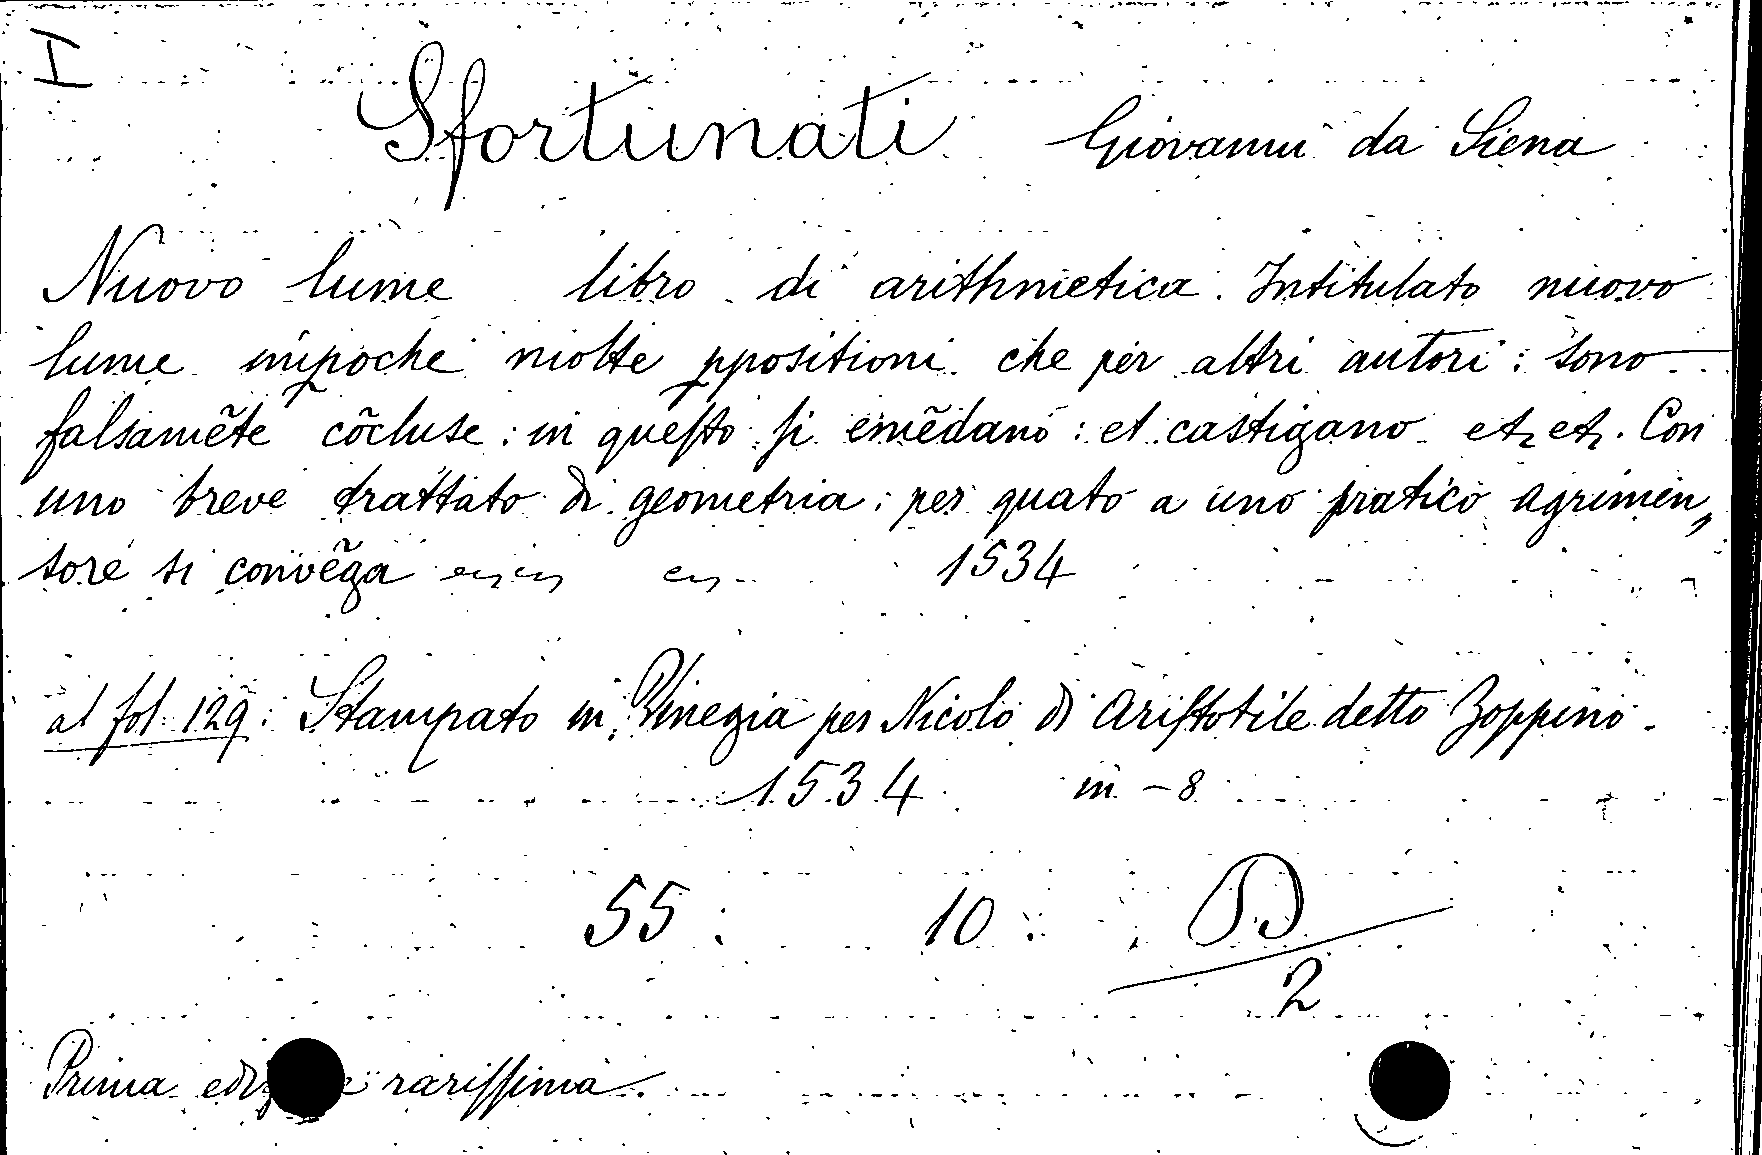 I
Sfortunati Giovanni da Siena
Nuovo lume libro di arithmetica. Intitulato nuovo
lume impoche molte ppositioni che per altri autori: sono
falsamẽte cõcluse: in questo si emẽdano: et castigano etz etz. Con
uno breve trattato di geometria: per quato a uno pratico agrimen„
sore si convẽga 1534
al fol. 129: Stampato in Vinegia per Nicolo di Aristotile detto Zoppino.
1534 in-8
55: 10:
2
Prima rarissima